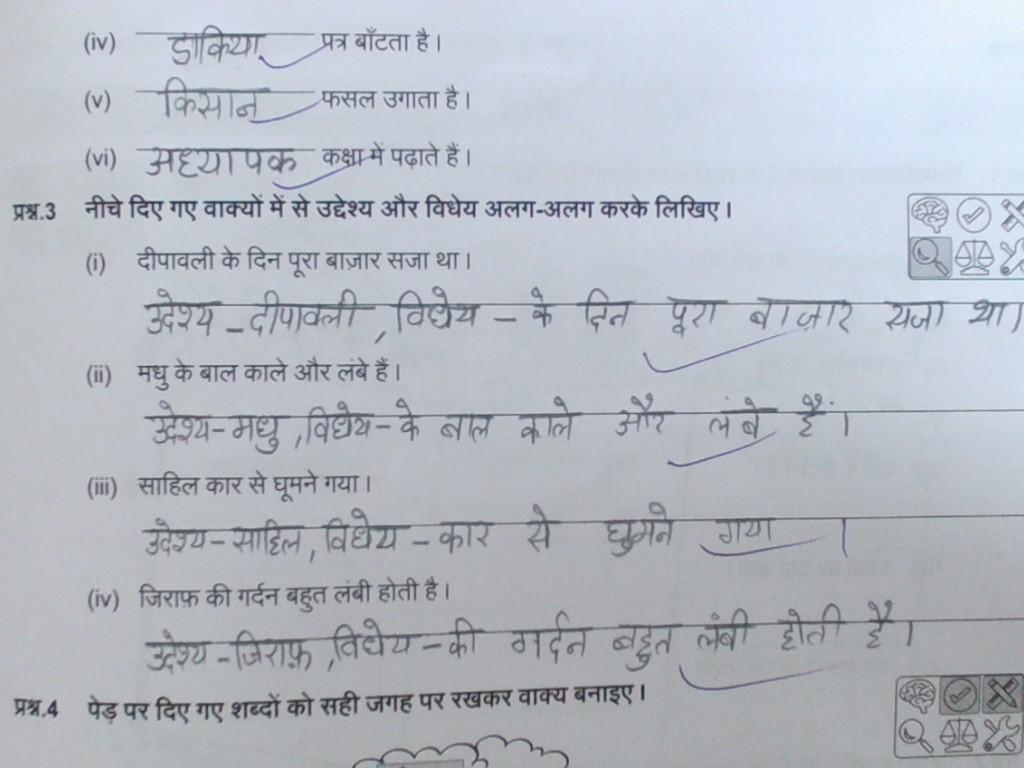 (iv) डाकिया पत्र बाँटता है।
(v) किसान फसल उगाता है।
(vi) अध्यापक कक्षा में पढ़ाते हैं।
प्रश्न.3 नीचे दिए गए वाक्यों में से उद्देश्य और विधेय अलग-अलग करके लिखिए।
(i) दीपावली के दिन पूरा बाज़ार सजा था।
उदेश्य - दीपावली, विधेय - के दिन पूरा बाज़ार सजा था।
(ii) मधु के बाल काले और लंबे हैं।
उदेश्य - मधु, विधेय - के बाल काले और लंबे हैं।
(iii) साहिल कार से घूमने गया।
उदेश्य - साहिल, विधेय - कार से घुमने गया।
(iv) जिराफ़ की गर्दन बहुत लंबी होती है।
उदेश्य - जिराफ़, विधेय - की गर्दन बहुत लंबी होती है।
प्रश्न.4 पेड़ पर दिए गए शब्दों को सही जगह पर रखकर वाक्य बनाइए।